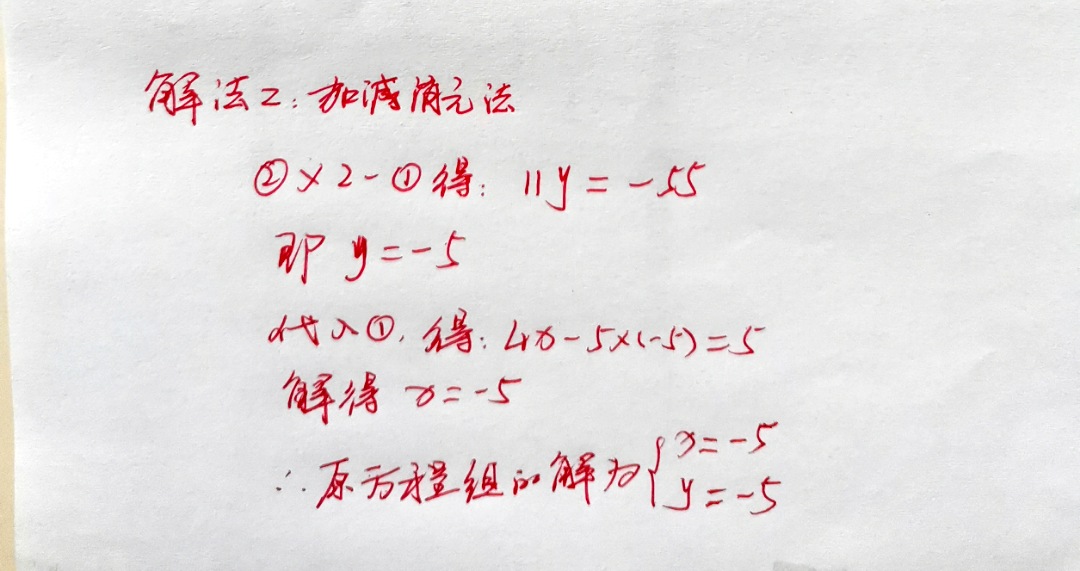 解法2:加减消元法
②×2-①得:11y=-55
即 y=-5
代入①,得:4x-5×(-5)=5
解得 x=-5
∴原方程组的解为{x=-5
y=-5